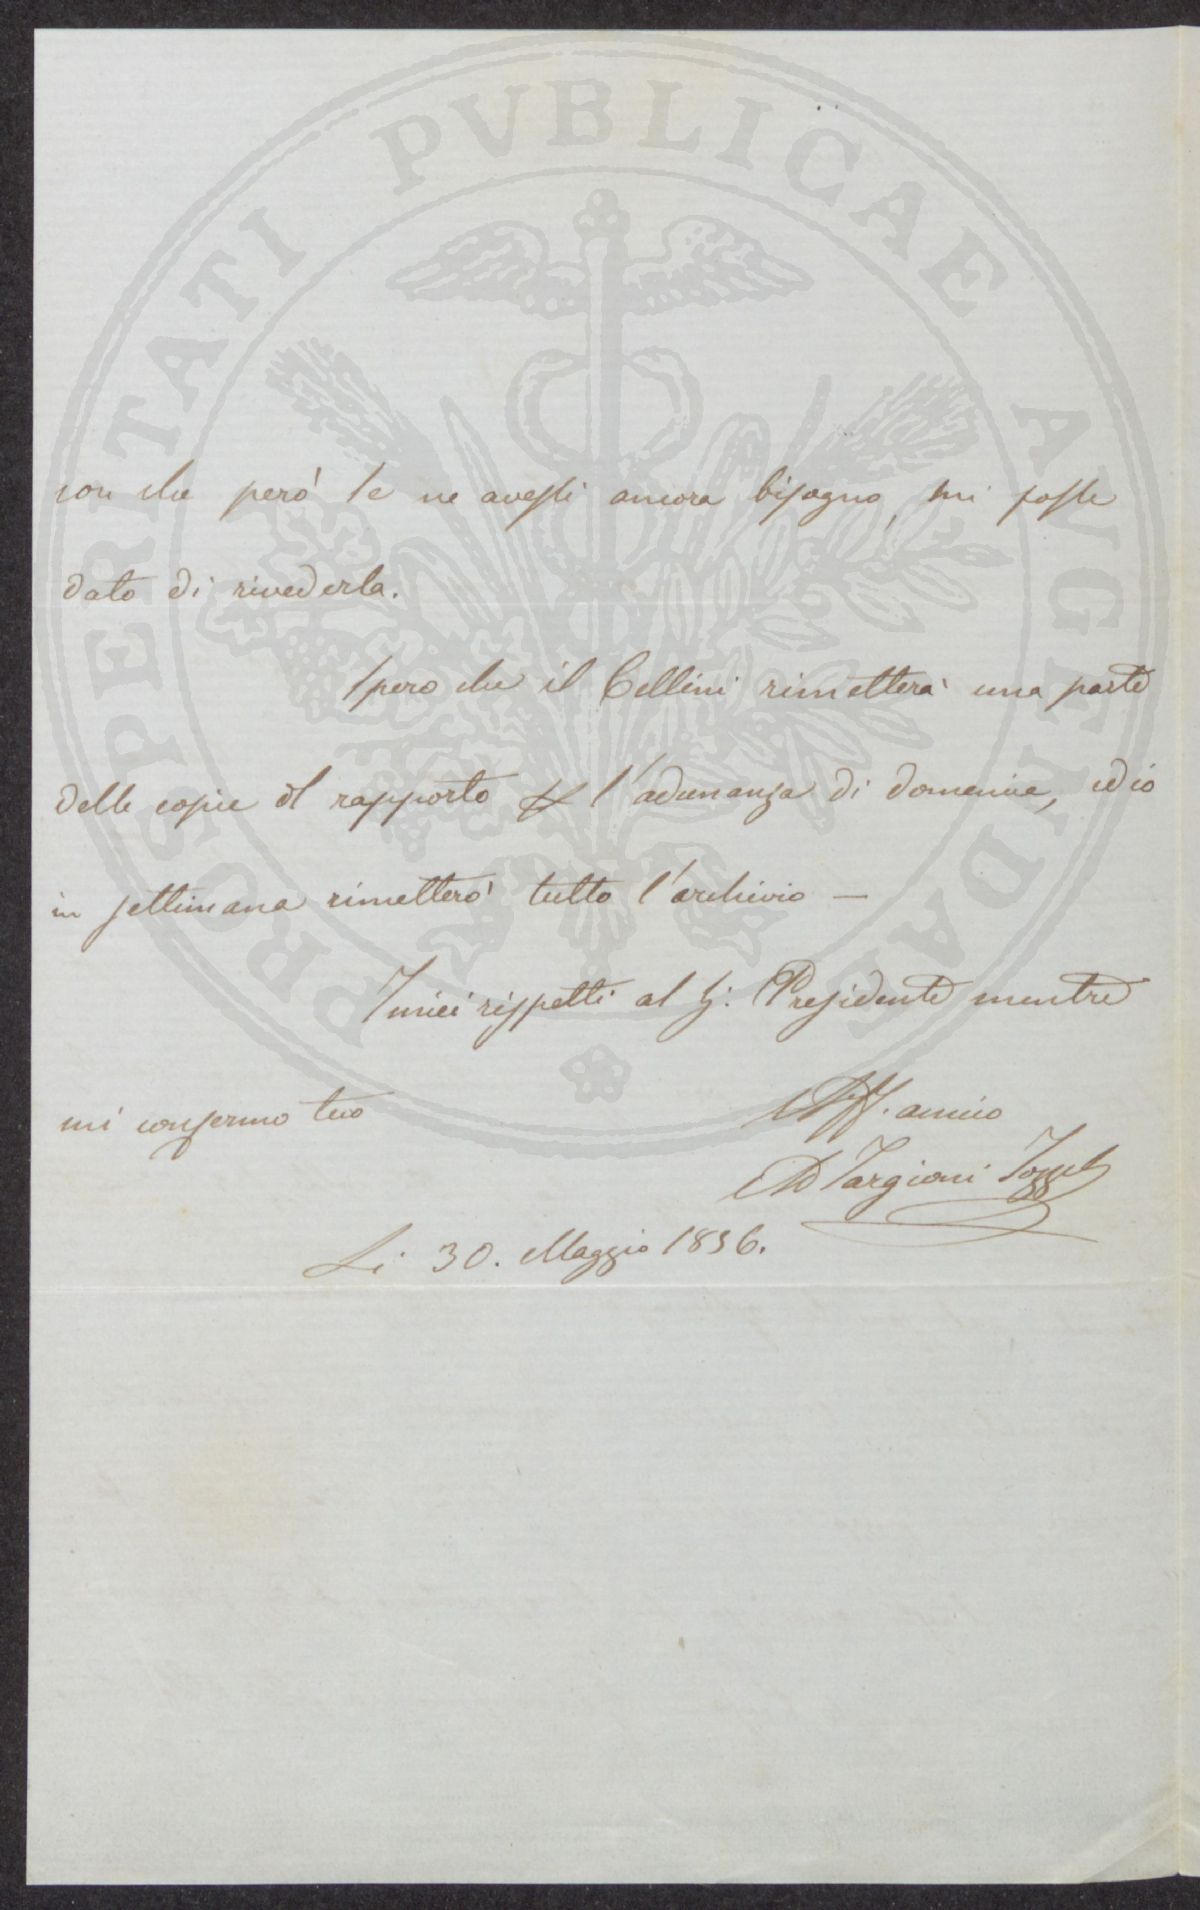 PROSPERITATI PVBLICAE AVGENDAE
con che però se ne avessi ancora bisogno, mi fosse
dato di rivederla.
Spero che il Cellini rimetterà una parte
delle copie del rapporto per l'adunanza di domenica, ed io
in settimana rimetterò tutto l'archivio —
I miei rispetti al Sig: Presidente mentre
mi confermo tuo
Aff. amico
Ad Targioni Tozzetti
Li 30. Maggio 1856.